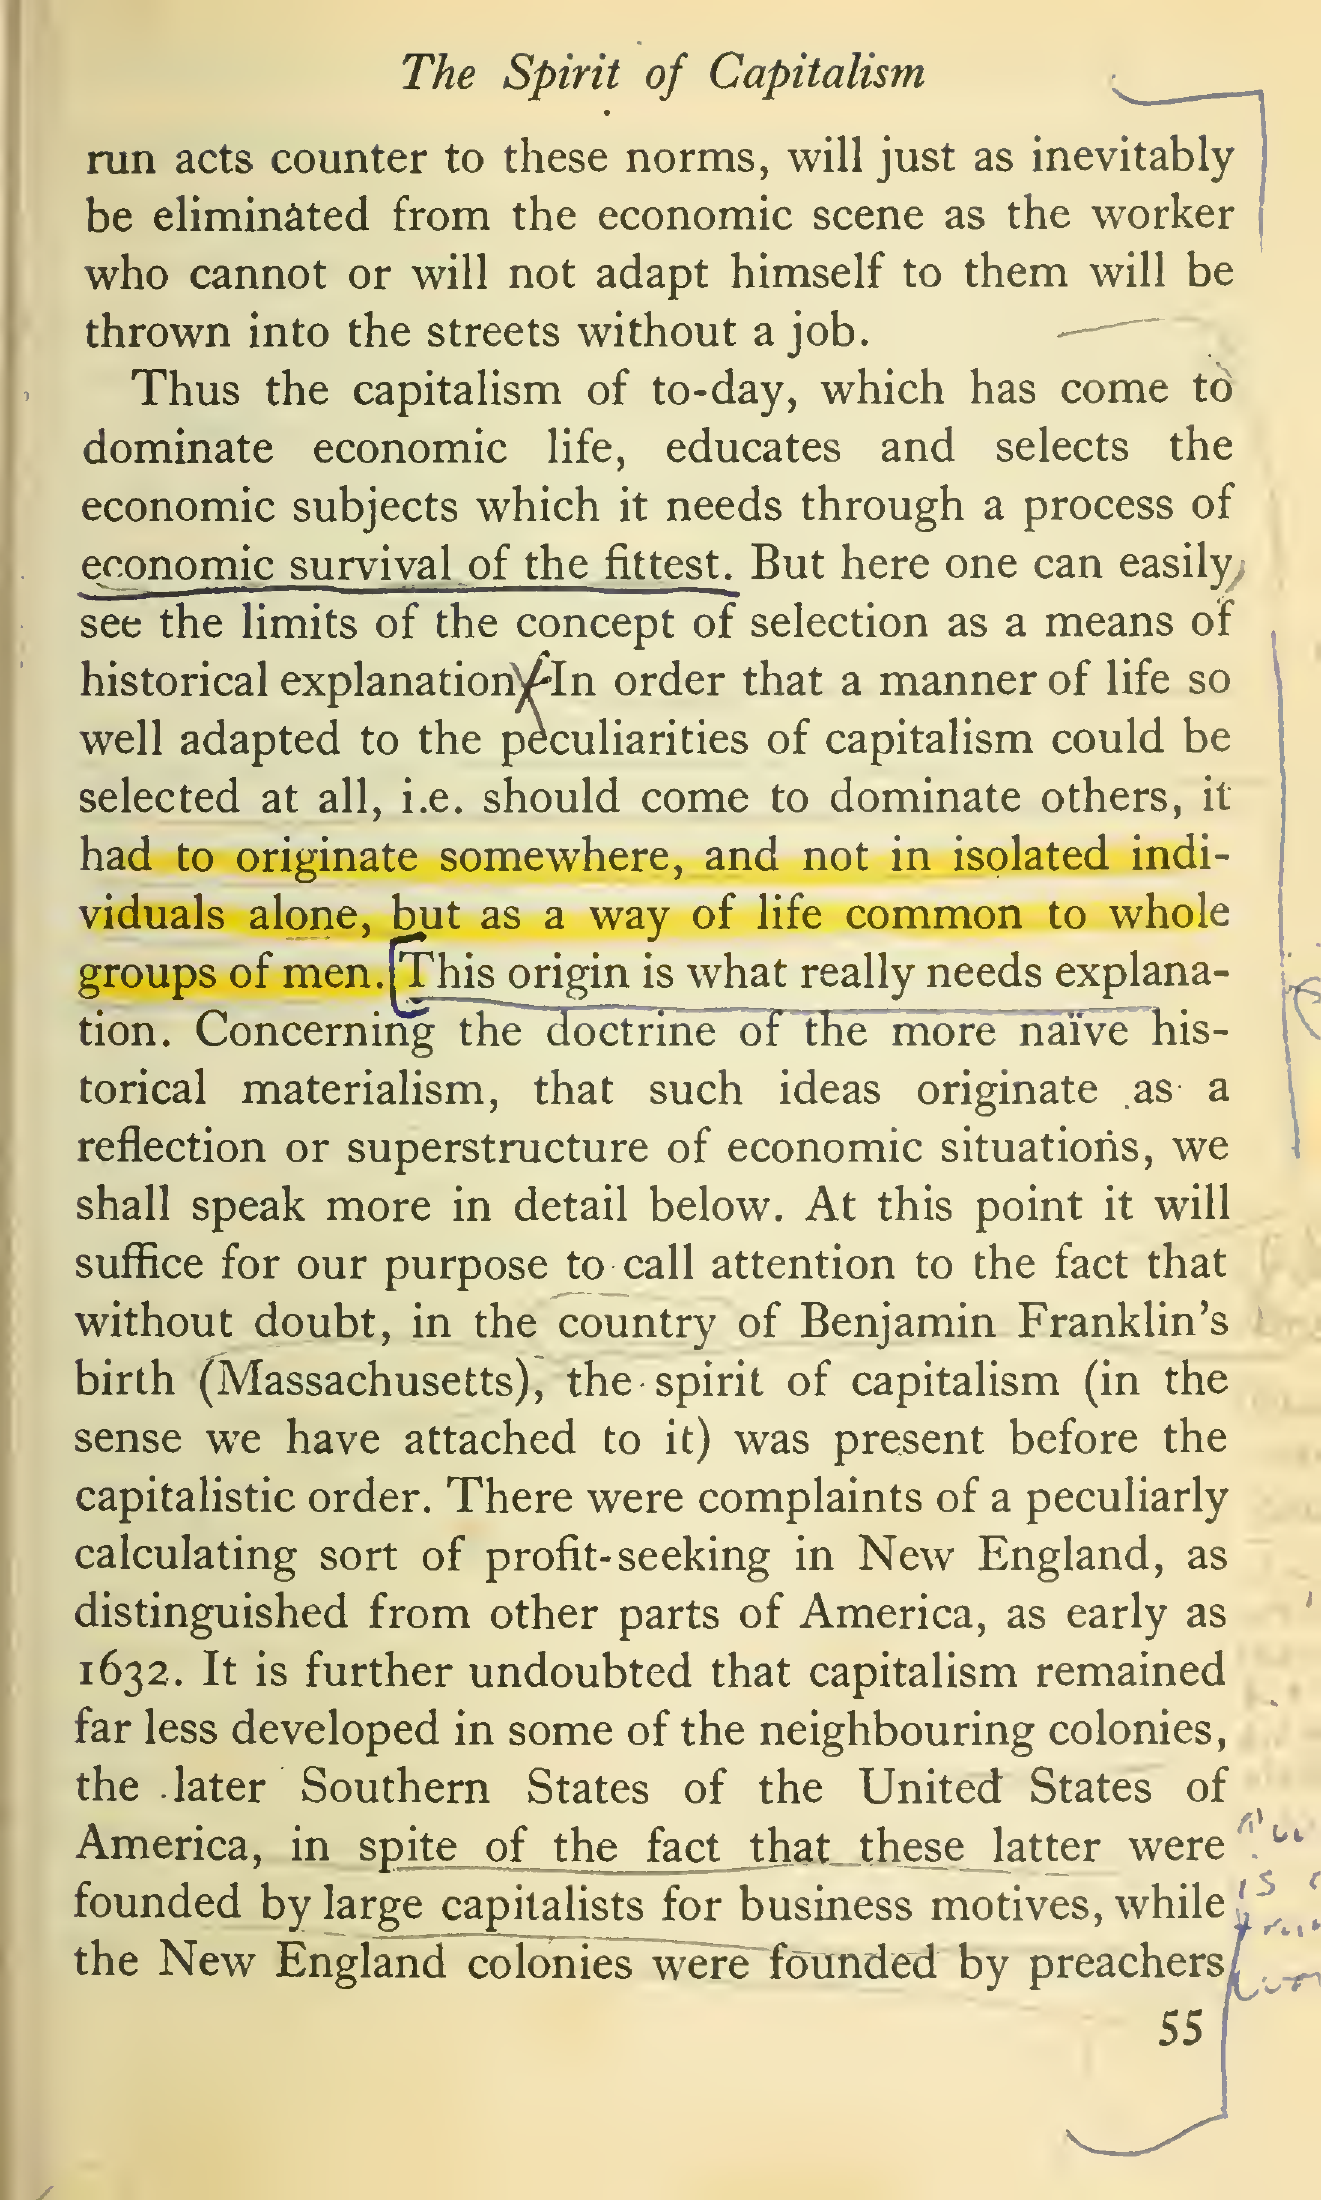 The Spirit of Capitalism
run acts counter to these norms, will just as inevitably
be eliminated from the economic scene as the worker
who cannot or will not adapt himself to them will be
thrown into the streets without a job.
Thus the capitalism of to-day, which has come to
dominate economic life, educates and selects the
economic subjects which it needs through a process of
economic survival of the fittest. But here one can easily
see the limits of the concept of selection as a means of
historical explanation. In order that a manner of life so
well adapted to the peculiarities of capitalism could be
selected at all, i.e. should come to dominate others, it
had to originate somewhere, and not in isolated indi-
viduals alone, but as a way of life common to whole
groups of men. This origin is what really needs explana-
tion. Concerning the doctrine of the more naïve his-
torical materialism, that such ideas originate as a
reflection or superstructure of economic situations, we
shall speak more in detail below. At this point it will
suffice for our purpose to call attention to the fact that
without doubt, in the country of Benjamin Franklin's
birth (Massachusetts), the spirit of capitalism (in the
sense we have attached to it) was present before the
capitalistic order. There were complaints of a peculiarly
calculating sort of profit-seeking in New England, as
distinguished from other parts of America, as early as
1632. It is further undoubted that capitalism remained
far less developed in some of the neighbouring colonies,
the later Southern States of the United States of
America, in spite of the fact that these latter were
founded by large capitalists for business motives, while
the New England colonies were founded by preachers
is
55